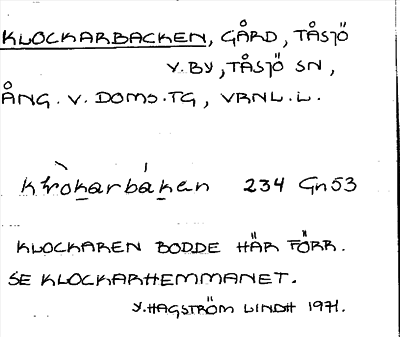 KLOCKARBACKEN, GÅRD, TÅSJÖ
V. BY, TÅSJÖ SN,
ÅNG. V. DOMS. TG, VRNL. L.
234 Gn53
KLOCKAREN BODDE HÄR FÖRR.
SE KLOCKARHEMMANET.
Y. HAGSTRÖM LINDH 1971.